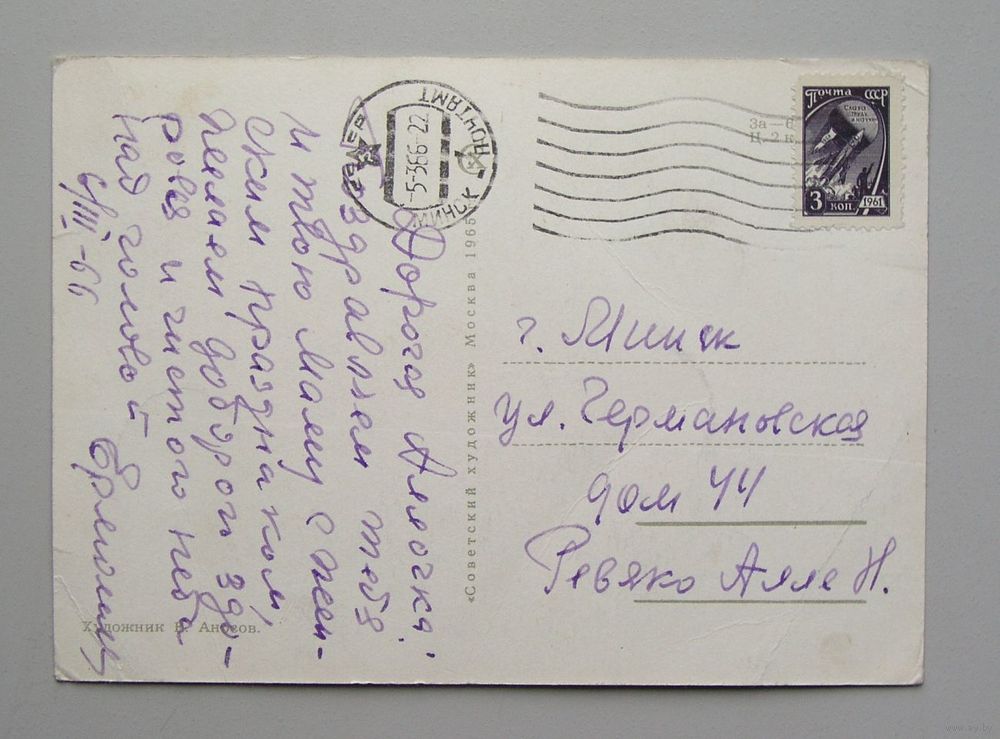 Дорогая Аллочка!
Поздравляем тебя
и твою маму с жен-
ским праздником,
желаем доброго здо-
ровья и чистого неба
над головой
6/III-66
Художник В. Аносов.
«Советский художник» Москва 1965
МИНСК - ПОЧТАМТ
-5-366-22
Почта СССР
3 коп 1961
г. Минск
ул. Германовская
дом 44
Ревяко Алле Н.